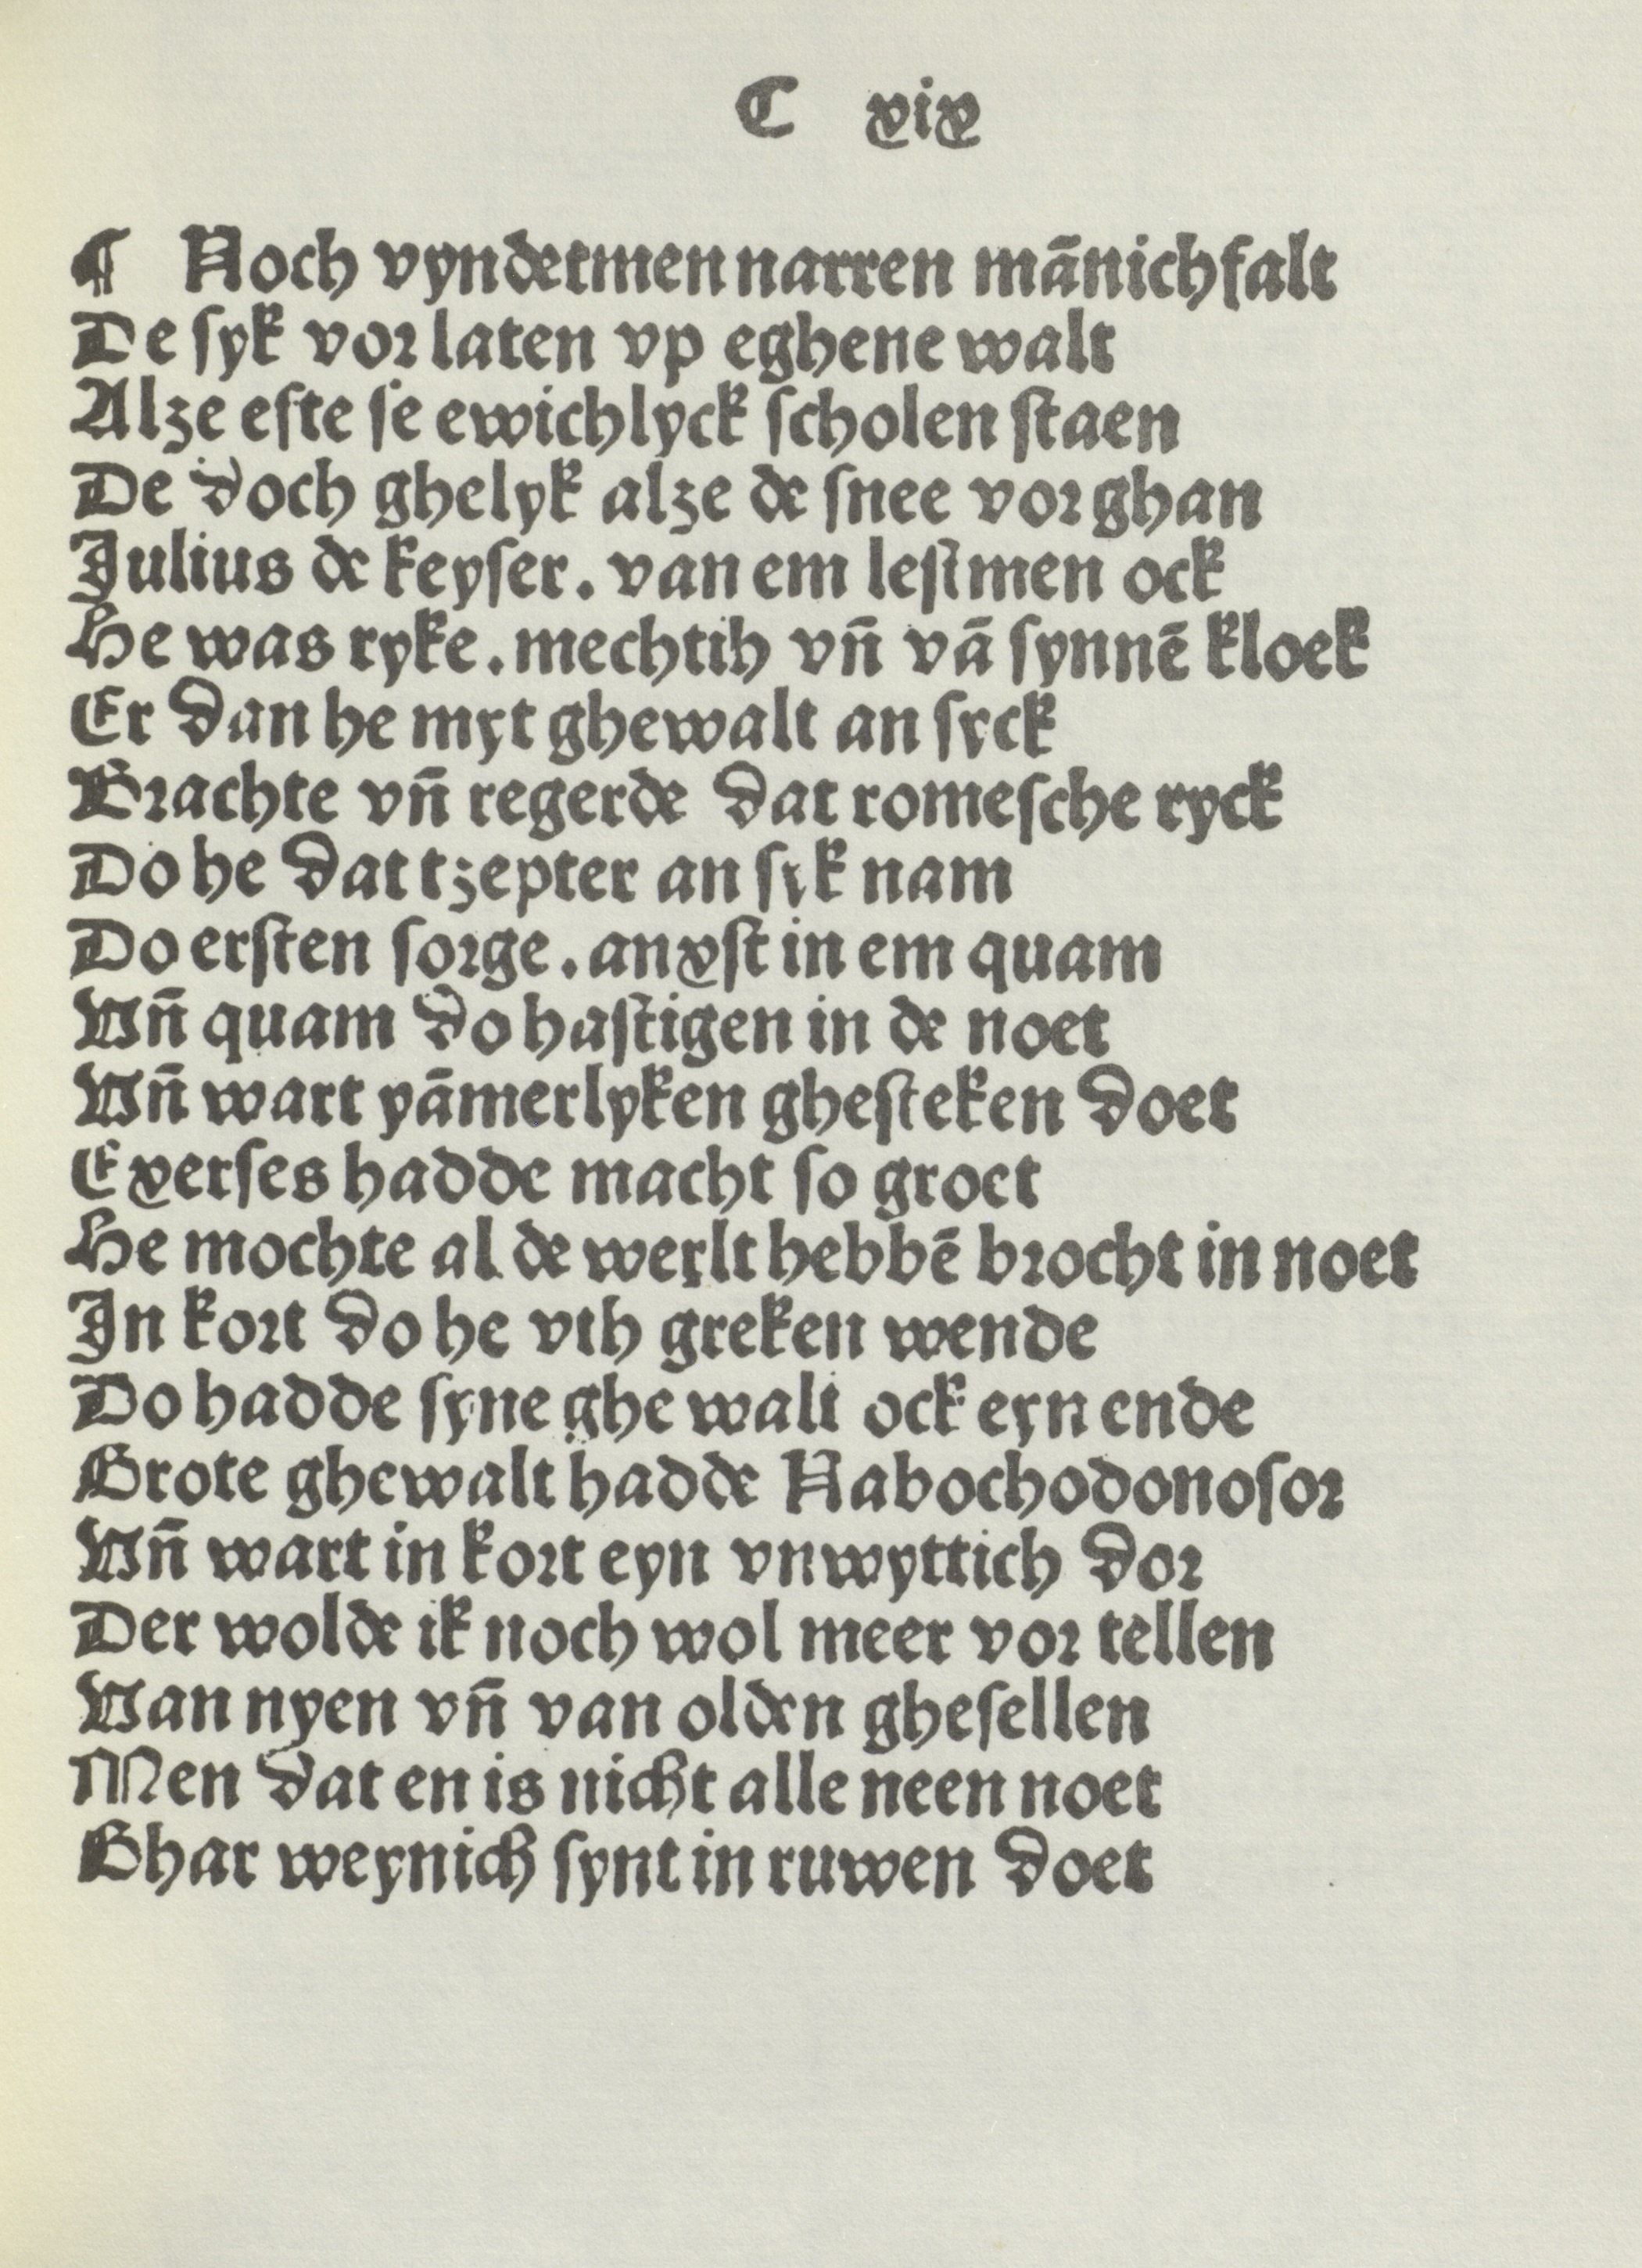 C xix
¶ Noch vyndetmen narren mānichfalt
De ſyk vor laten vp eghene walt
Alze efte ſe ewichlyck ſcholen ſtaen
De doch ghelyk alze de ſnee vorghan
Julius de keyſer. van em leſtmen ock
He was ryke. mechtih vn̄ vā ſynnē kloek
Er dan he myt ghewalt an ſyck
Brachte vn̄ regerde dat romeſche ryck
Do he dat tzepter an ſyk nam
Do erſten ſorge. anxſt in em quam
Vn̄ quam do haſtigen in de noet
Vn̄ wart yāmerlyken gheſteken doet
Exerſes hadde macht ſo groet
He mochte al de werlt hebbē brocht in noet
In kort do he vth greken wende
Do hadde ſyne ghewalt ock eyn ende
Grote ghewalt hadde Nabochodonoſor
Vn̄ wart in kort eyn vnwyttich dor
Der wolde ik noch wol meer vor tellen
Van nyen vn̄ van olden gheſellen
Men dat en is nicht alle neen noet
Ghar weynich ſynt in ruwen doet